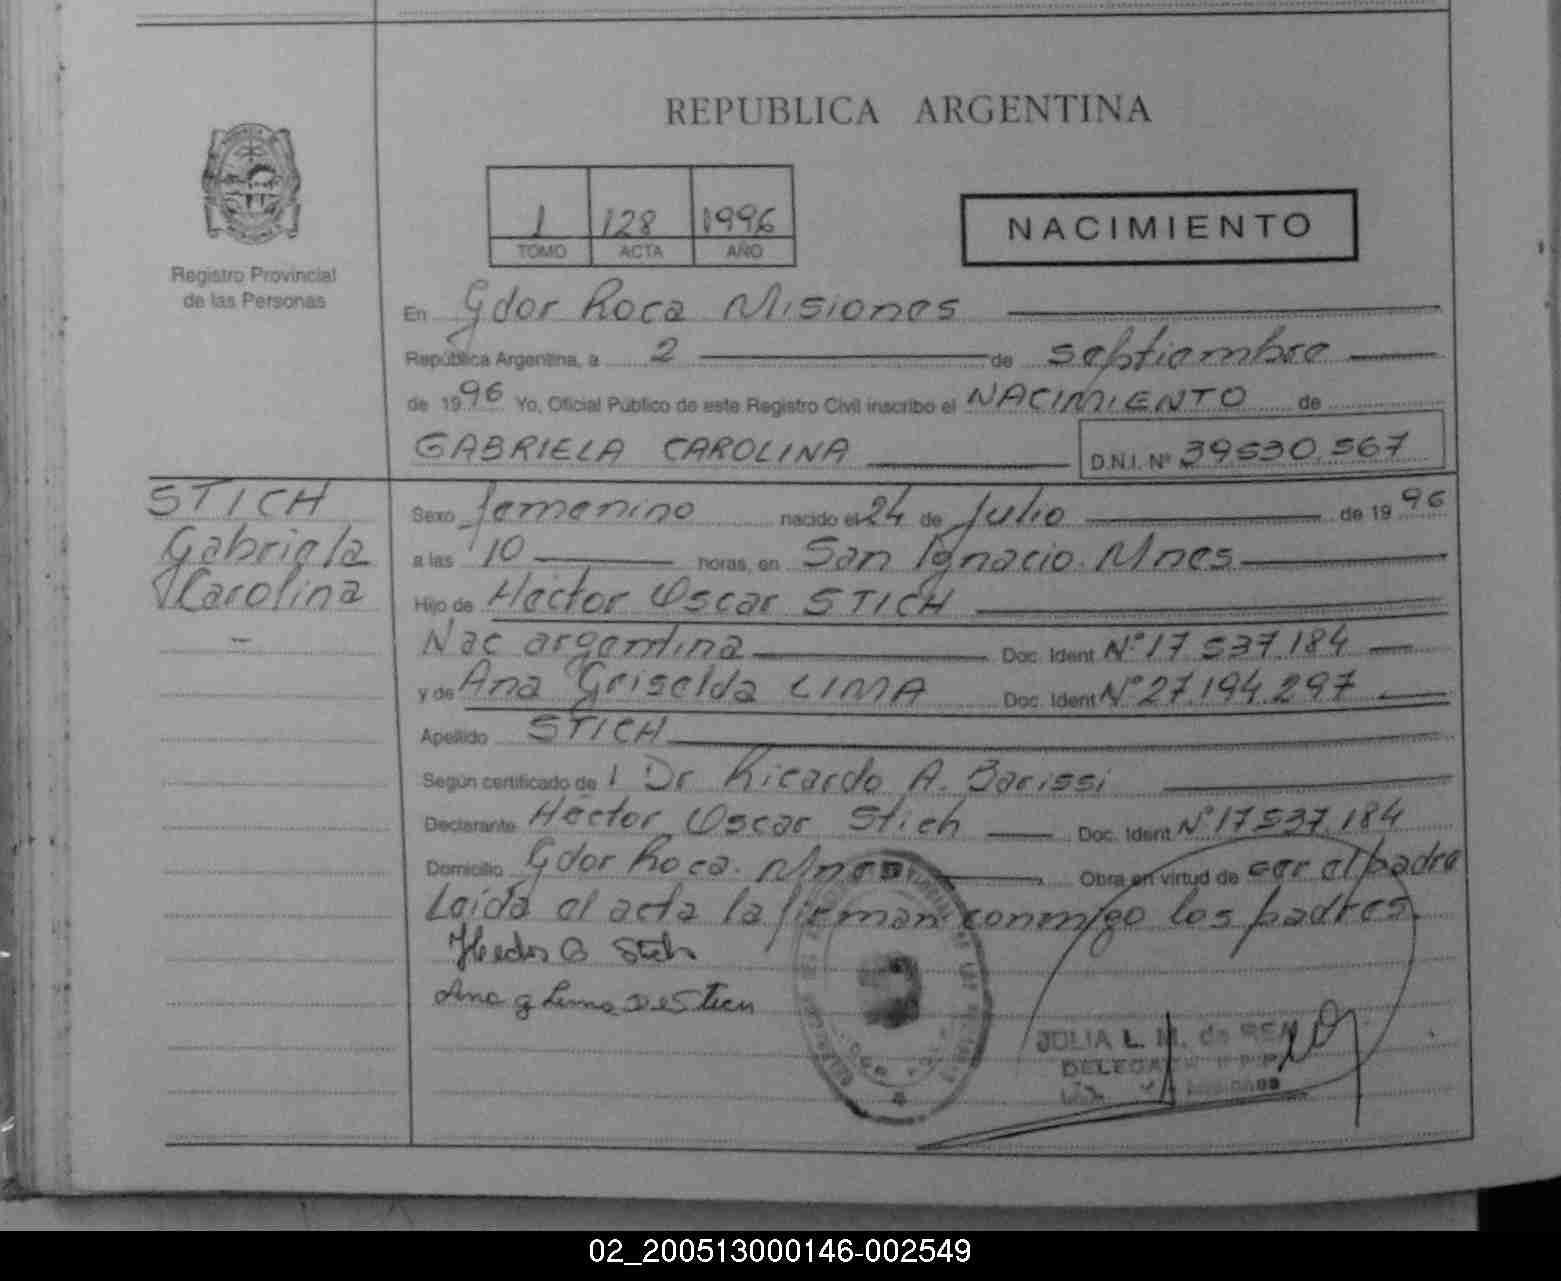 REPUBLICA ARGENTINA
Registro Provincial
de las Personas
1 128 1996
TOMO ACTA AÑO
NACIMIENTO
En Gdor Roca Misiones
República Argentina, a 2 de septiembre
de 1996 Yo, Oficial Público de este Registro Civil inscribo el NACIMIENTO de
GABRIELA CAROLINA D.N.I. Nº 39530.567
STICH
Gabriela
Carolina
Sexo femenino nacido el 24 de Julio de 1996
a las 10 horas, en San Ignacio. Mnes
Hijo de Héctor Oscar STICH
Nac argentina Doc. Ident Nº 17.537.184
y de Ana Griselda LIMA Doc. Ident Nº 27.194.297
Apellido STICH
Según certificado de 1 Dr Ricardo A. Barissi
Declarante Héctor Oscar Stich Doc. Ident Nº 17537.184
Domicilio Gdor Roca. Mnes Obra en virtud de ser el padre
Leída el acta la firman conmigo los padres.
Hector O Stich
Ana G Lima de Stich
JULIA L. M. de
DELEGA
02_200513000146-002549